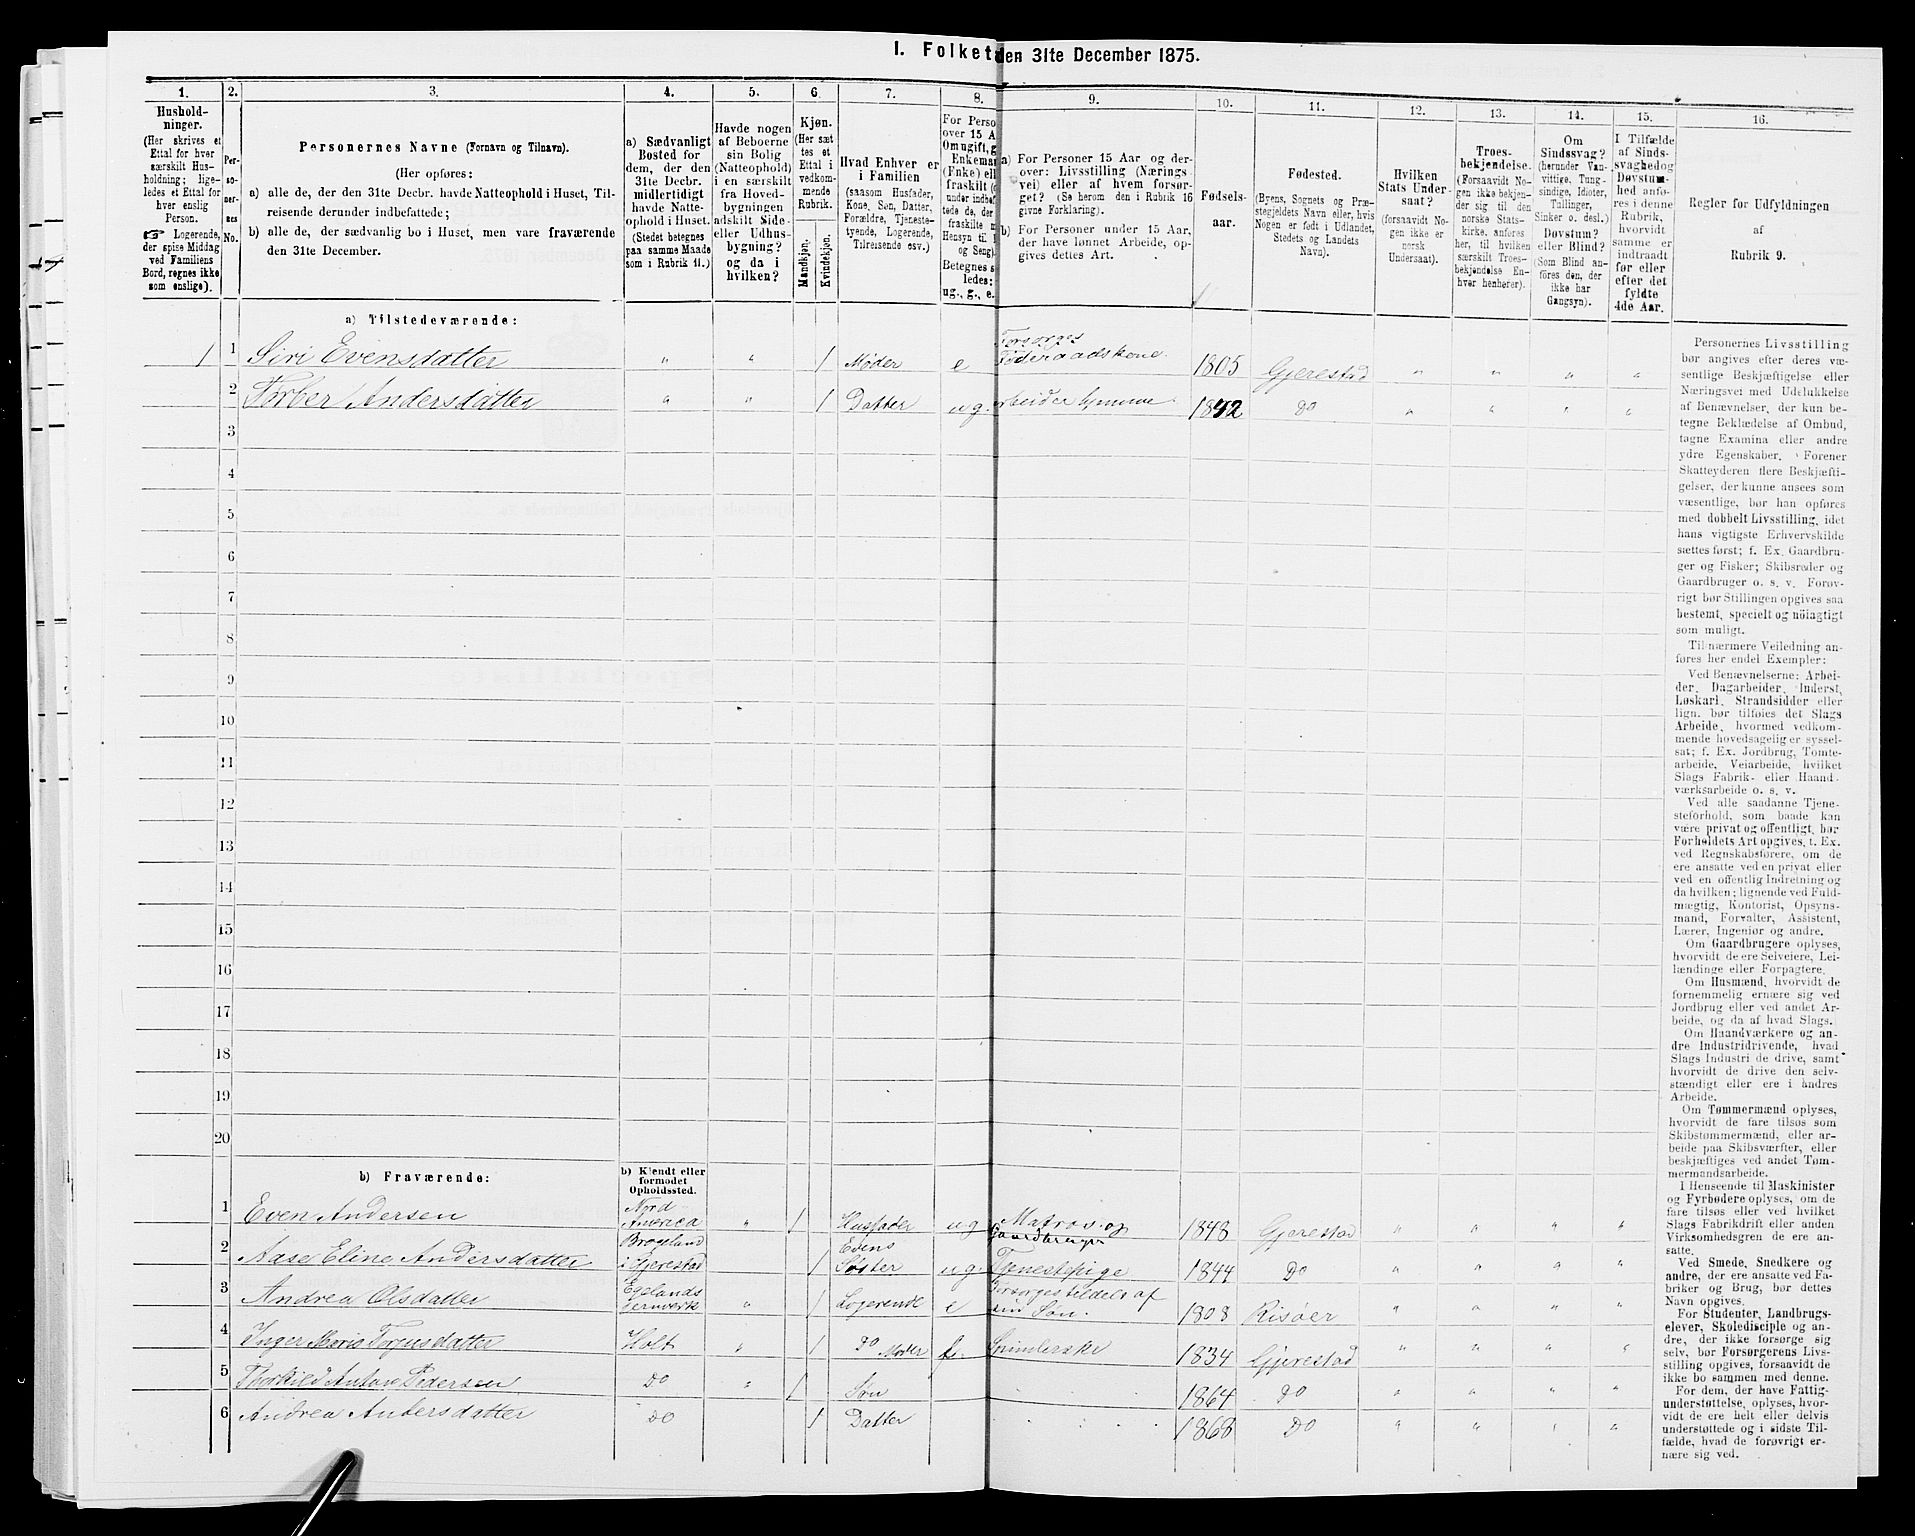 I. Folket den 31te December 1875.
1.
Hushold-
ninger.
(Her skrives et
Ettal for hver
særskilt Hus-
holdning; lige-
ledes et Ettal for
hver enslig
Person.
☞ Logerende,
der spise Middag
ved Familiens
Bord, regnes ikke
som enslige).
2.
Per-
so-
ner-
nes
No.
3.
Personernes Navne (Fornavn og Tilnavn).
(Her opføres:
a) alle de, der den 31te Decbr. havde Natteophold i Huset, Til-
reisende derunder indbefattede;
b) alle de, der sædvanlig bo i Huset, men vare fraværende
den 31te December.
4.
a) Sædvanligt
Bosted for
dem, der den
31te Decbr.
midlertidigt
havde Natte-
ophold i Huset.
(Stedet betegnes
paa samme Maade
som i Rubrik 11.)
5.
Havde nogen
af Beboerne
sin Bolig
(Natteophold)
i en særskilt
fra Hoved-
bygningen
adskilt Side-
eller Udhus-
bygning?
og da i
hvilken?
6.
Kjøn.
(Her sæt
tes et
Ettal i
vedkom-
mende
Rubrik.
Mandkjøn.
Kvindekjøn.
7.
Hvad Enhver er
i Familien
(saasom Husfader,
Kone, Søn, Datter,
Forældre, Tjeneste-
tyende, Logerende,
Tilreisende osv.)
8.
For Perso
over 15 A
Om ugift, g
Enkemæ
(Enke) ell
fraskilt (
under indbe
tede de, der
fraskilte
Hensyn til
og Seng)
Betegnes s
ledes:
ug., g., e.
9.
a) For Personer 15 Aar og der-
over: Livsstilling (Nærings
vei) eller af hvem forsør-
get? (Se herom den i Rubrik 16
givne Forklaring).
b) For Personer under 15 Aar,
der have lønnet Arbeide, op-
gives dettes Art.
10.
Fødsels-
aar.
11.
Fødested.
(Byens, Sognets og Præ-
stegjeldets Navn eller, hvis
Nogen er født i Udlandet,
Stedets og Landets
Navn).
12.
Hvilken
Stats Under-
saat?
(forsaavidt No-
gen ikke er
norsk
Undersaat).
13.
Troes-
bekjendelse.
(Forsaavidt No-
gen ikke bekjen-
der sig til den
norske Stats-
kirke, anføres
her, til hvilken
særskilt Troes-
bekjendelse En-
hver henhører).
14.
Om
Sindssvag?
(herunder Van-
vittige, Tung-
sindige, Idioter,
Tullinger,
Sinker o. desl.)
Døvstum?
eller Blind?
(Som Blind an-
føres den, der
ikke har
Gangsyn).
15.
I Tilfælde
af Sinds-
svaghed og
Døvstum-
hed anfø-
res i denne
Rubrik,
hvorvidt
samme er
indtraadt
før eller
efter det
fyldte
4de Aar.
16.
Regler for Udfyldningen
af
Rubrik 9.
a) Tilstedeværende:
1 1 Siri Evensdatter " " 1 Møder e Forsørges Føderaadskone 1805 Gjerestad " " " "
2 Torber Andersdatter " " 1 Datter ug. arbeider hjemme 1842 Do " " " "
3
4
5
6
7
8
9
10
11
12
13
14
15
16
17
18
19
20
b) Fraværende:
b) Kjendt eller
formodet
Opholdssted.
1 Even Andersen Nord America " 1 Husfader ug Matros og Gaardbruger 1848 Gjerestad " " " "
2 Aase Eline Andersdatter Brogeland i Gjerestad 1 Evens Søster ug. Tjenestepige 1844 Do " " " "
3 Andrea Olsdatter Egelands Jernverk " 1 Logerende e Forsørges tildels af sin Søn 1808 Risøer " " " "
4 Inger Maria Torjusdatter Holt " 1 Do Moder f. Spinderske 1834 Gjerestad " " " "
5 Thorkild Anton Pedersen Do " 1 Søn 1864 Do " " " "
6 Andrea Andersdatter Do 1 Datter 1868 Do " " " "
Personernes Livsstilling
bør angives efter deres væ-
sentlige Beskjæftigelse eller
Næringsvei med Udelukkelse
af Benævnelser, der kun be-
tegne Beklædelse af Ombud,
tagne Examina eller andre
ydre Egenskaber. Forener
Skatteyderen flere Beskjæfti-
gelser, der kunne ansees som
væsentlige, bør han opføres
med dobbelt Livsstilling, idet
hans vigtigste Erhvervskilde
sættes først; f. Ex. Gaardbru-
ger og Fisker; Skibsreder og
Gaardbruger o. s. v. Forøv-
rigt bør Stillingen opgives saa
bestemt, specielt og nöiagtigt
som muligt.
Til nærmere Veiledning an-
føres her endel Exempler:
Ved Benævnelserne: Arbei-
der, Dagarbeider, Inderst,
Løskarl, Strandsidder eller
lign. bør tilføies det Slags
Arbeide, hvormed vedkom-
mende hovedsagelig er syssel-
sat; f. Ex. Jordbrug, Tomte-
arbeide, Veiarbeide, hvilket
Slags Fabrik- eller Haand-
værksarbeide o. s. v.
Ved alle saadanne Tjene-
steforhold, som baade kan
være privat og offentligt, bør
Forholdets Art opgives, t. Ex.
ved Regnskabsførere, om de
ere ansatte ved en privat eller
ved en offentlig Indretning og
da hvilken; lignende ved Fuld-
mægtig, Kontorist, Opsyns-
mand, Forvalter, Assistent,
Lærer, Ingeniør og andre.
Om Gaardbrugere oplyses,
hvorvidt de ere Selveiere, Lei-
lændinge eller Forpagtere.
Om Husmænd, hvorvidt de
fornemmelig ernære sig ved
Jordbrug eller ved andet Ar-
beide, og da af hvad Slags.
Om Haandværkere og an-
dre Industridrivende, hvad
Slags Industri de drive, samt
hvorvidt de drive den selv-
stændigt eller ere i Andres
Arbeide.
Om Tømmermænd oplyses,
hvorvidt de fare tilsøs som
Skibstømmermænd, eller ar-
beide paa Skibsværfter, eller
beskjæftiges ved andet Tøm-
mermandsarbeide.
I Henseende til Maskinister
og Fyrbødere oplyses, om de
fare tilsøs eller ved hvilket
Slags Fabrikdrift eller anden
Virksomhedsgren de ere an-
satte.
Ved Smede, Snedkere og
andre, der ere ansatte ved Fa-
briker og Brug, bør dettes
Navn opgives.
For Studenter, Landbrugs-
elever, Skoledisciple og an-
dre, der ikke forsørge sig
selv, bør Forsørgerens Livs-
stilling opgives, forsaavidt de
ikke bo sammen med denne.
For dem, der have Fattig-
understøttelse, oplyses, hvor-
vidt de ere helt eller delvis
understøttede og i sidste Til-
fælde, hvad de forøvrigt er-
nære sig ved.